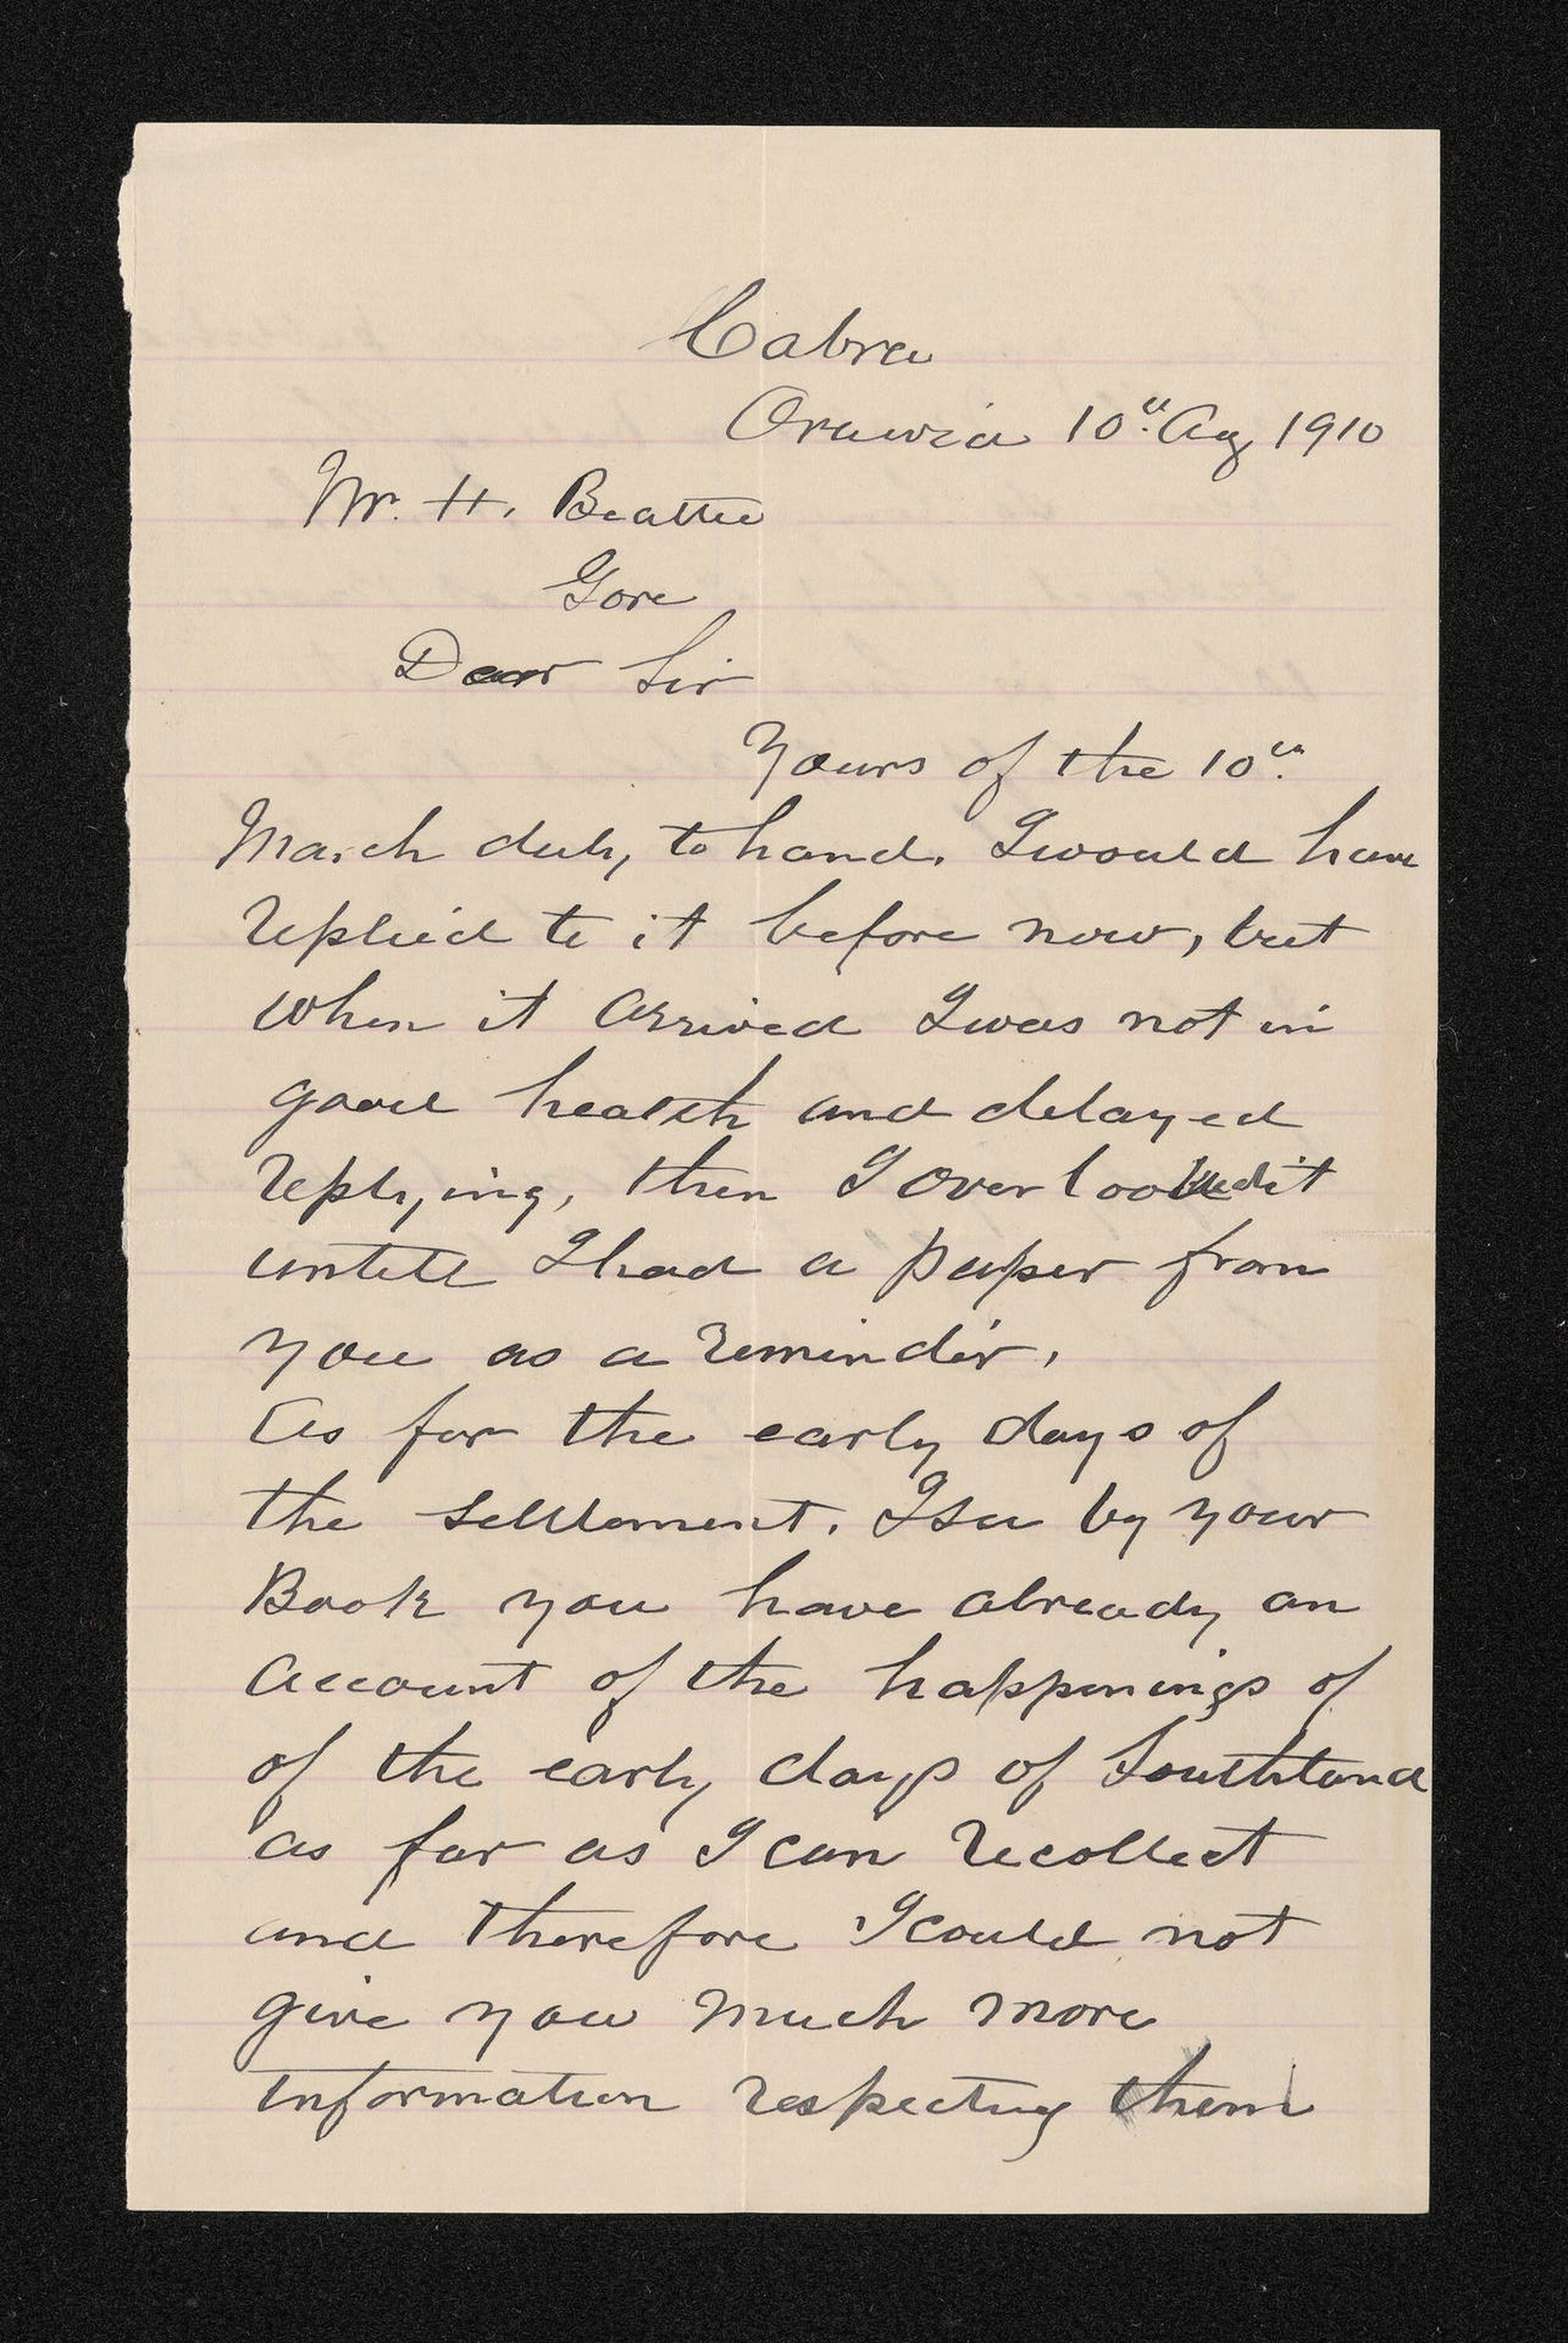 Cabra
Orawia 10th Aug 1910
Mr. H. Beattie
Gore
Dear Sir
Yours of the 10th
March duly to hand. I would have
replied to it before now, but
when it arrived I was not in
good health and delayed
replying, then I overlooked it
untill I had a paper from
you as a reminder.
As for the early days of
the settlement. I see by your
Book you have already an
account of the happenings of
of the early days of Southland
as far as I can recollect
and therefore I could not
give you much more
information respecting them